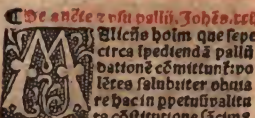 De aucte ⁊ usu pallii. Johēs. xxii
MAlicās hoīm que sepe
circa īpediendā pallii
dationē cōmittunt᷑: vo
lētes salubriter obuia
re hac in ppetuū valitu
ra cōstitutione sācim᷒